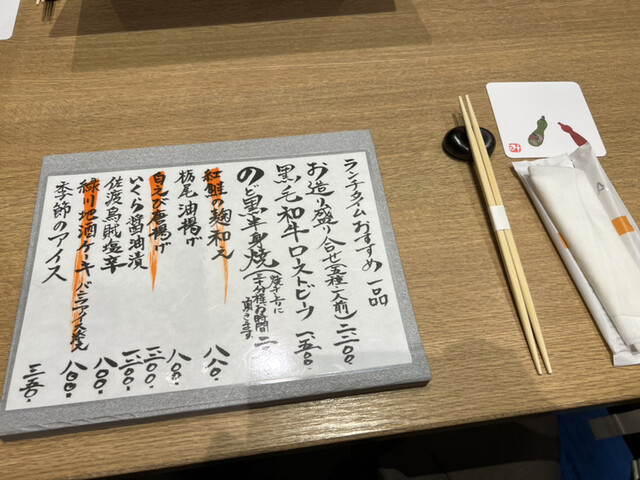 ランチタイムおすすめ一品
お造り盛り合せ五種(一人前)二二〇〇.
黒毛和牛ローストビーフ 一五〇〇.
のど黒半身焼
紅鮭の麹和え 八八〇.
栃尾油揚げ 八八〇.
白えび唐揚げ 一三〇〇.
いくら醤油漬 一三〇〇.
佐渡烏賊塩辛 八八〇.
緑川地酒ケーキ バニラアイス添え 八〇〇.
季節のアイス 三五〇.